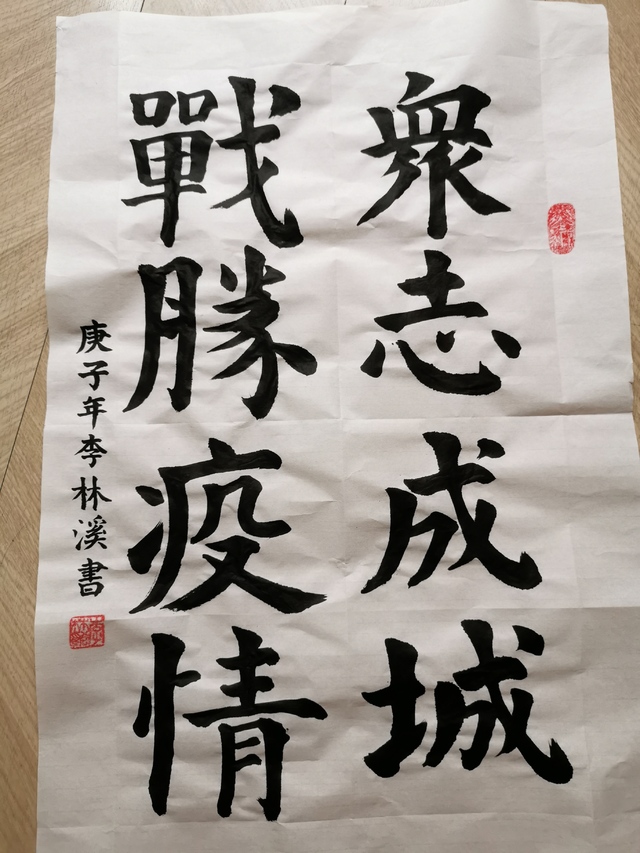 衆志成城
戰勝疫情
庚子年李林溪書